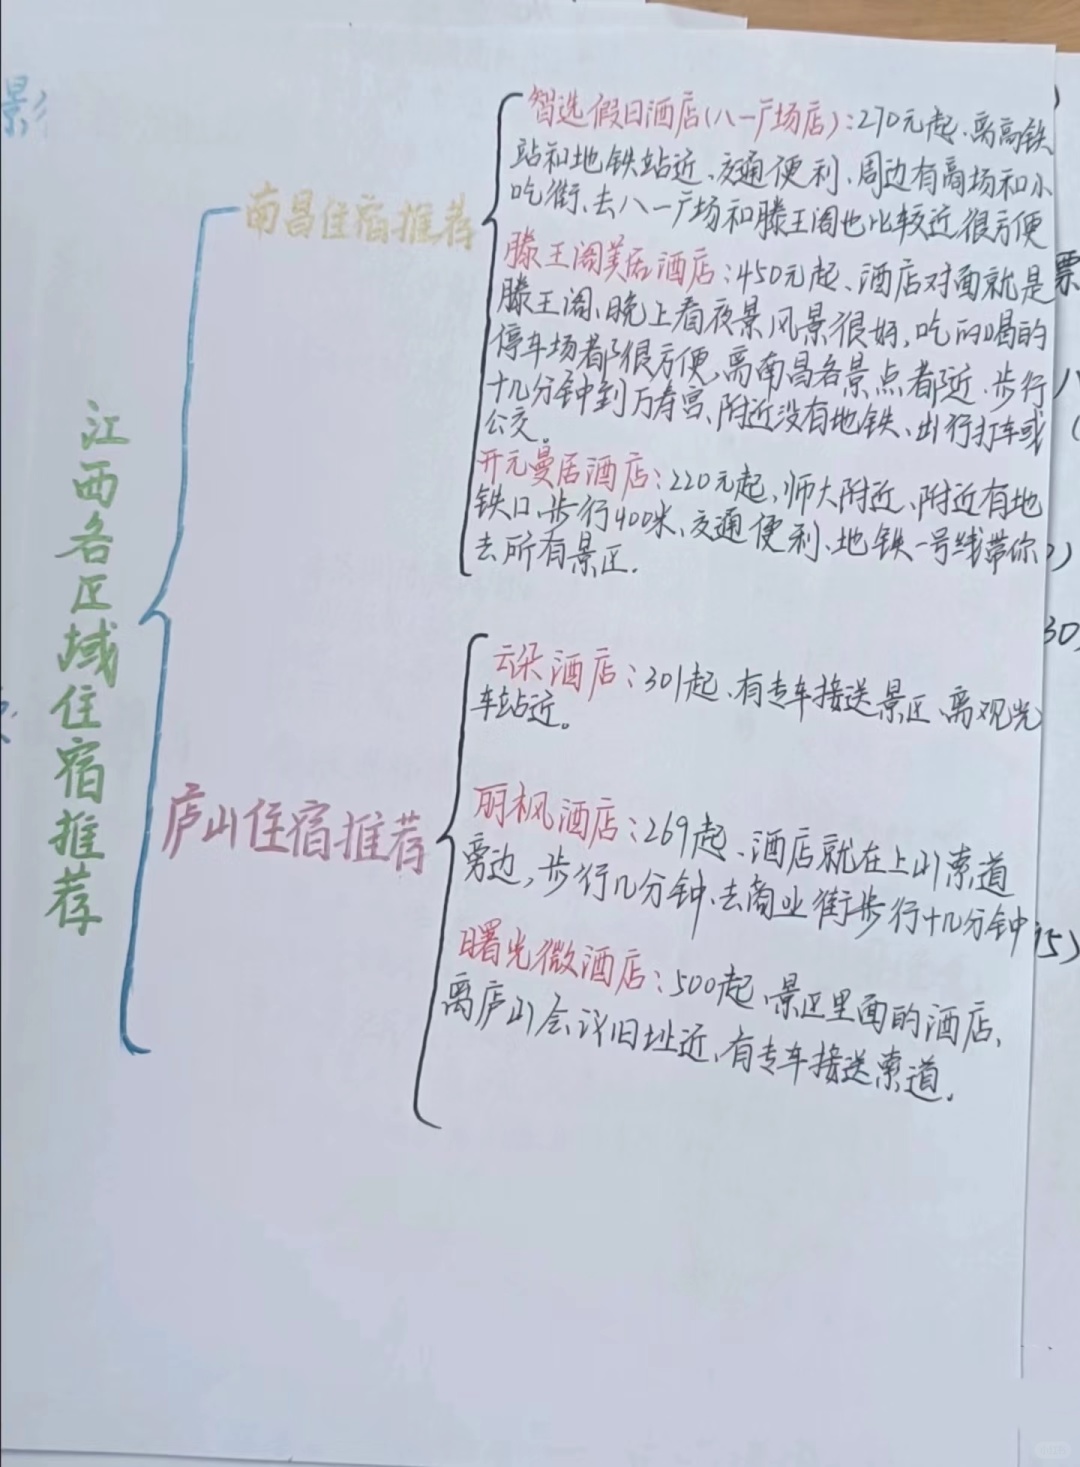 影
江西各区域住宿推荐
南昌住宿推荐
智选假日酒店(八一广场店):270元起、离高铁
站和地铁站近、交通便利、周边有商场和小
吃街、去八一广场和滕王阁也比较近很方便
滕王阁美居酒店:450元起、酒店对面就是
滕王阁、晚上看夜景风景很好,吃的喝的
停车场都很方便,离南昌各景点都近、步行
十几分钟到万寿宫、附近没有地铁、出行打车或
公交。
开元曼居酒店:220元起、师大附近、附近有地
铁口、步行400米、交通便利、地铁一号线带你
去所有景区.
庐山住宿推荐
云朵酒店:301起、有专车接送景区、离观光
车站近。
丽枫酒店:269起、酒店就在上山索道
旁边,步行几分钟、去商业街步行十几分钟
曙光微酒店:500起、景区里面的酒店,
离庐山会议旧址近、有专车接送索道.
票
八
30)
15)